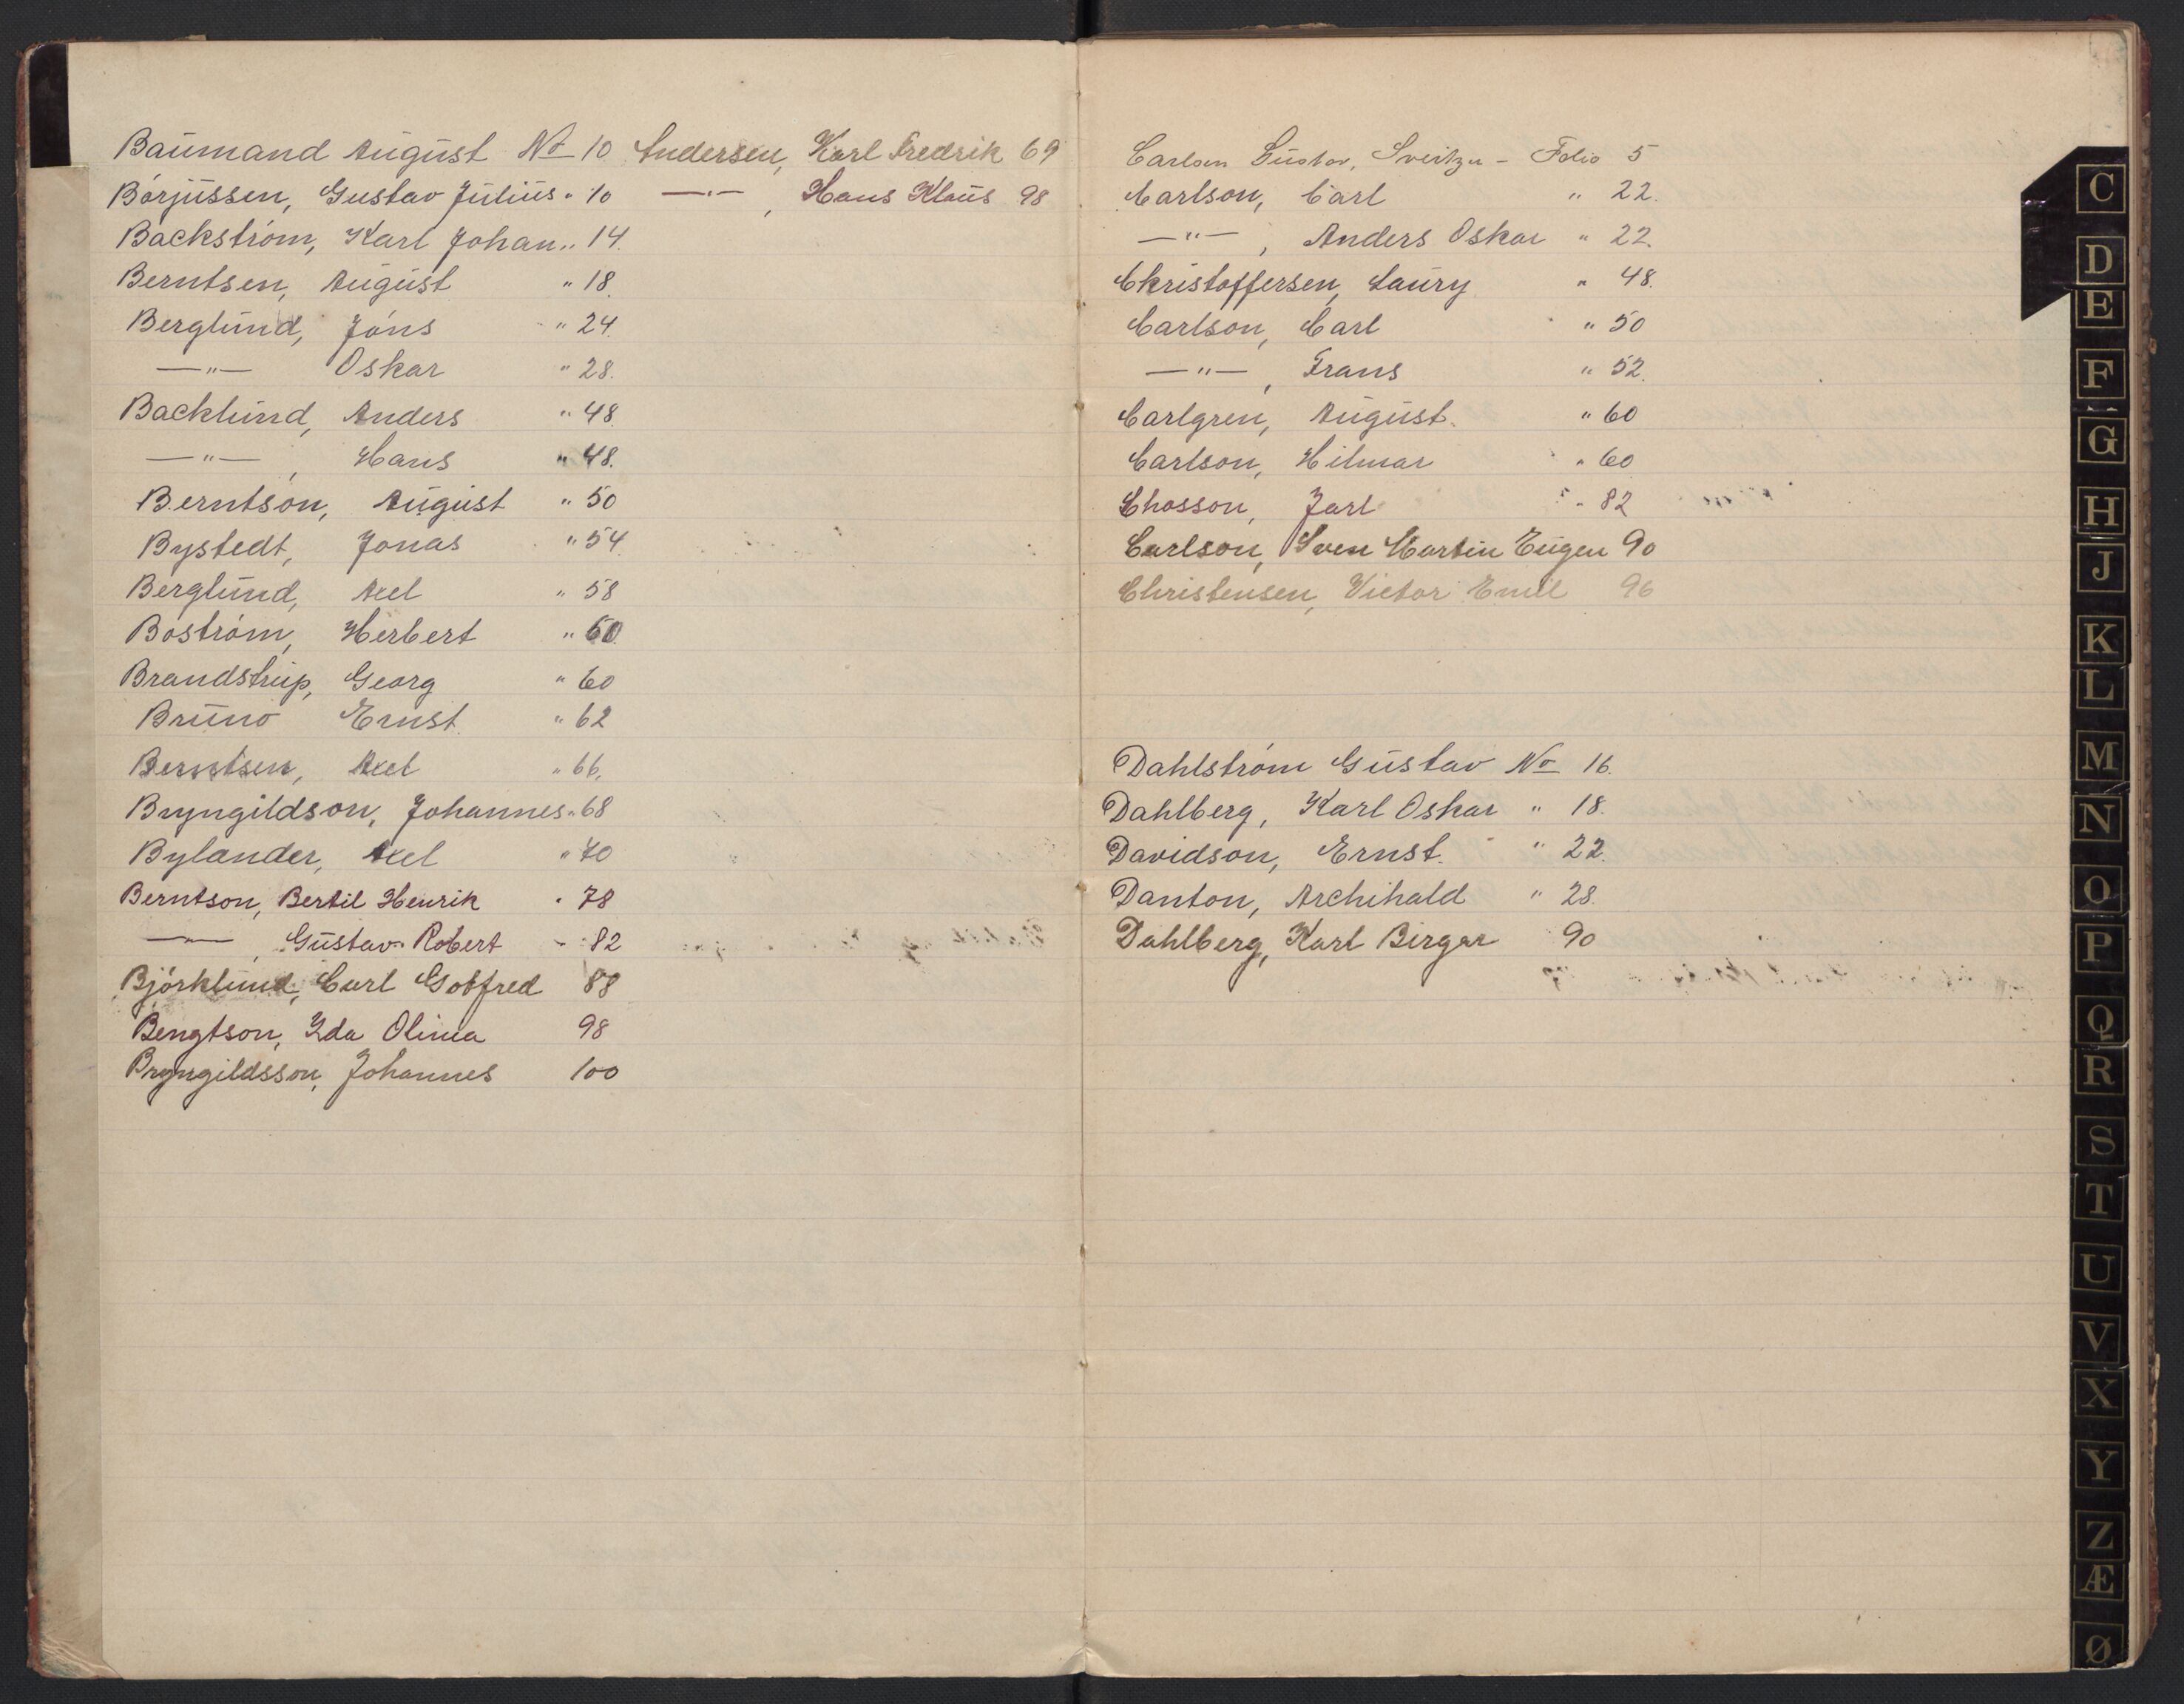 Baumand August No 10 Andersen, Karl Fredrik 69
Börjussen, Gustav Julius " 10 —"— , Hans Klaus 98
Backström, Karl Johan " 14.
Berntsen, August " 18.
Berglund, Jöns " 24.
—"— Oskar " 28.
Backlund, Anders " 48.
—"— , Hans " 48.
Berntson, August " 50
Bystedt, Jonas " 54
Berglund, Axel " 58
Boström, Herbert " 60.
Brandstrup, Georg " 60
Bruno Ernst. " 62
Berntsen, Axel " 66.
Bryngildson, Johannes " 68
Bylander, Axel " 70
Berntson, Bertil Henrik " 78
—"— , Gustav Robert - 82
Björklund, Carl Gotfred 88
Bengtson, Ida Olivia 98
Bryngildsson, Johannes 100
Carlson Gustav, Sveitzer - Folio 5
Carlson, Carl " 22.
—"— , Anders Oskar " 22.
Christoffersen, Laury " 48.
Carlson, Carl " 50
—"— , Frans " 52.
Carlgren, August. " 60
Carlson, Hilmar " 60
Chosson, Jarl " 82
Carlson, Sven Martin Eugen 90
Christensen, Victor Emil 96
Dahlström Gustav No 16.
Dahlberg, Karl Oskar " 18.
Davidson, Ernst. " 22.
Danton, Archihald " 28.
Dahlberg, Karl Birger 90
C
D
E
F
G
H
J
K
L
M
N
O
P
Q
R
S
T
U
V
X
Y
Z
Æ
Ø